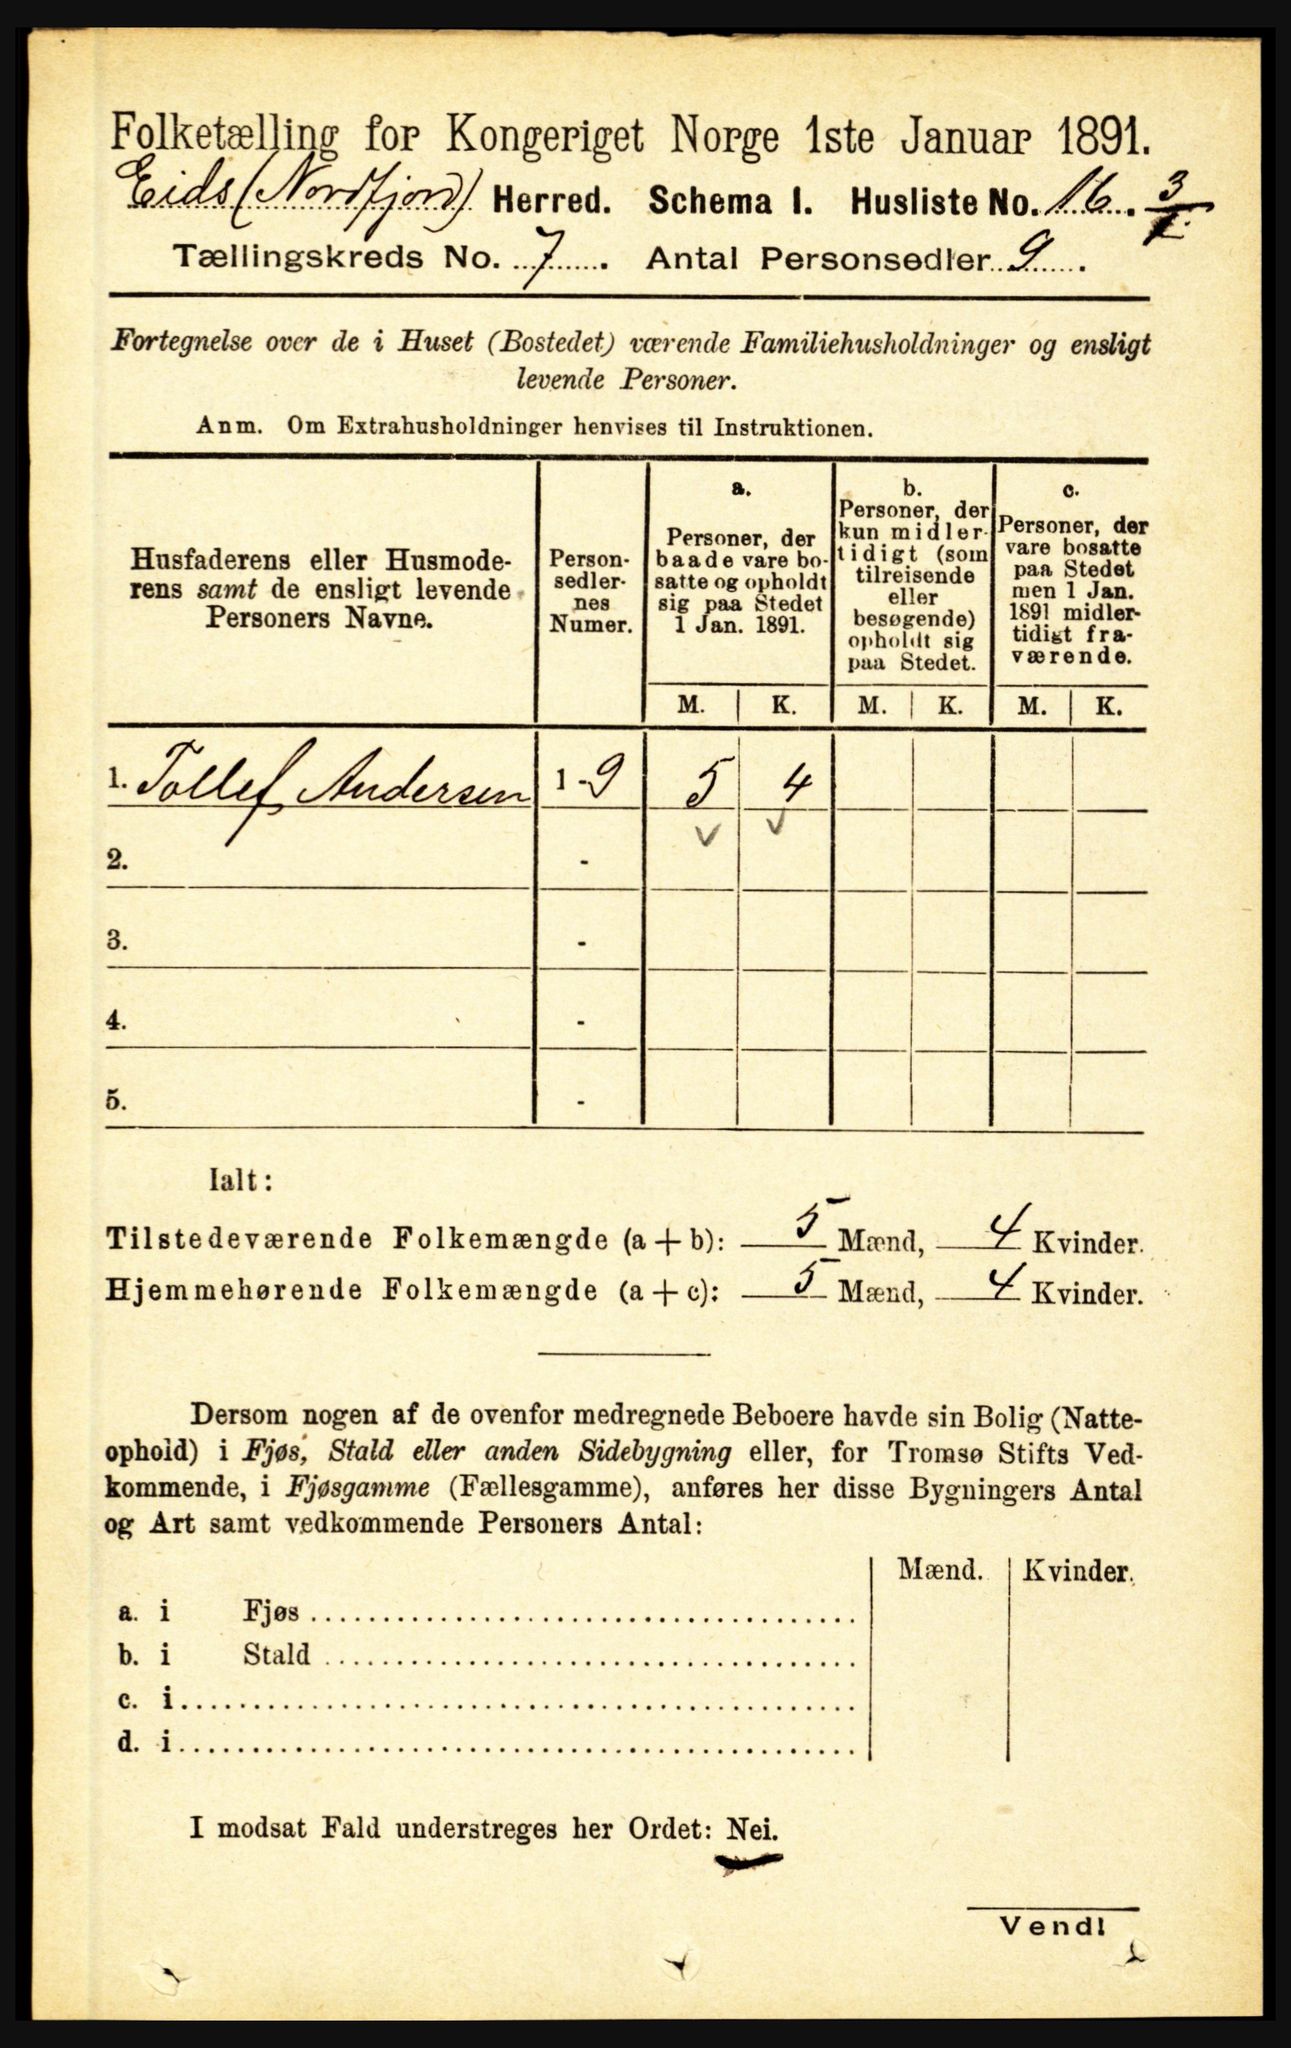 Folketælling for Kongeriget Norge 1ste Januar 1891.
Eids (Nordfjord) Herred. Schema I. Husliste No. 16. 3/1.
Tællingskreds No. 7. Antal Personsedler 9.
Fortegnelse over de i Huset (Bostedet) værende Familiehusholdninger og ensligt
levende Personer.
Anm. Om Extrahusholdninger henvises til Instruktionen.
Husfaderens eller Husmode-
rens samt de ensligt levende
Personers Navne.
Person-
sedler-
nes
Numer.
a.
Personer, der
baade vare bo-
satte og opholdt
sig paa Stedet
1 Jan. 1891.
b.
Personer, der
kun midler-
tidigt (som
tilreisende
eller
besøgende)
opholdt sig
paa Stedet.
c.
Personer, der
vare bosatte
paa Stedet
men 1 Jan.
1891 midler-
tidigt fra-
værende.
M. K. M. K. M. K.
1. Tollef Andersen 1-9 5 4
2. -
3. -
4. -
5. -
Ialt:
Tilstedeværende Folkemængde (a + b): 5 Mænd, 4 Kvinder.
Hjemmehørende Folkemængde (a + c): 5 Mænd, 4 Kvinder.
Dersom nogen af de ovenfor medregnede Beboere havde sin Bolig (Natte-
ophold) i Fjøs, Stald eller anden Sidebygning eller, for Tromsø Stifts Ved-
kommende, i Fjøsgamme (Fællesgamme), anføres her disse Bygningers Antal
og Art samt vedkommende Personers Antal:
Mænd. Kvinder.
a. i Fjøs
b. i Stald
c. i
d. i
I modsat Fald understreges her Ordet: Nei.
Vend!